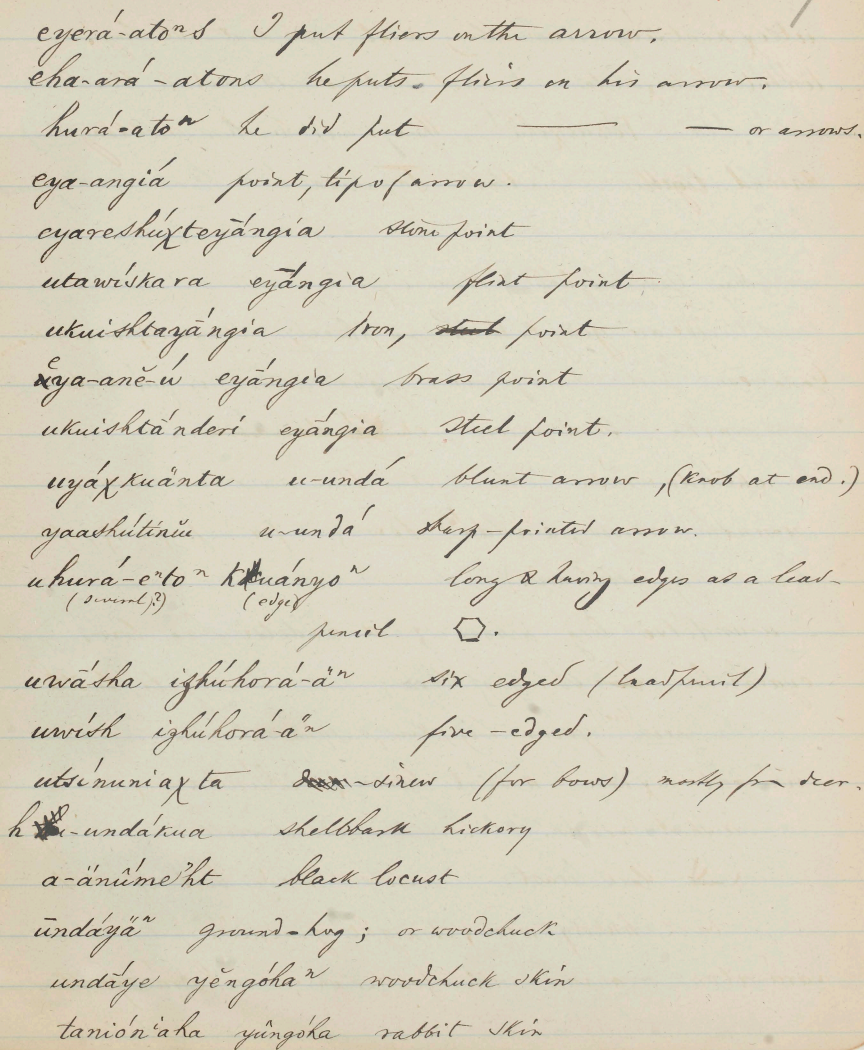 eyerá-atoⁿs I put fliers on the arrow.
eha-ará-atons he puts fliers on his arrow.
hurá-atoⁿ he did put — — or arrows.
eya-angiá point, tip of arrow.
eyareshúχteyángia stone point
utawískara eyángia flint point
ukuishtayángia iron, steel point
eya-aně-ú eyángia brass point
ukuishtánderi eyángia steel point.
uyáχkuänta u-undá blunt arrow, (knob at end.)
yaashútinŭu u-undá sharp-pointed arrow.
uhurá-eⁿtoⁿ kuányoⁿ long & having edges as a lead-
(several?) (edge)
pencil ⬡.
uwásha izhúhorá-äⁿ six edged (leadpencil)
uwísh izhúhorá-äⁿ five-edged.
utsínuniaχta -sinew (for bows) mostly fr. deer.
h -undákua shellbark hickory
a-änûme'ht black locust
ūndáyäⁿ ground-hog; or woodchuck
undáye yěngóhaⁿ woodchuck skin
tanióniaha yûngóha rabbit skin